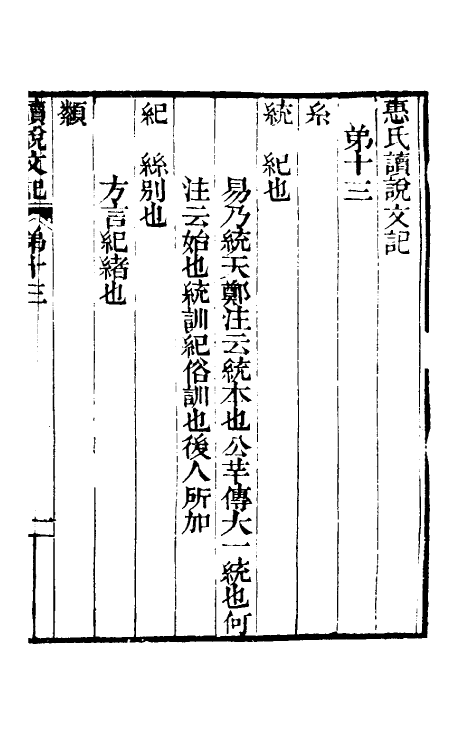 惠氏讀說文記
弟十三
糸
統 紀也
易乃統天鄭注云統本也公羊傳大一統也何
注云始也統訓紀俗訓也後人所加
紀 絲別也
方言紀緒也
纇
讀說文記 弟十三 一